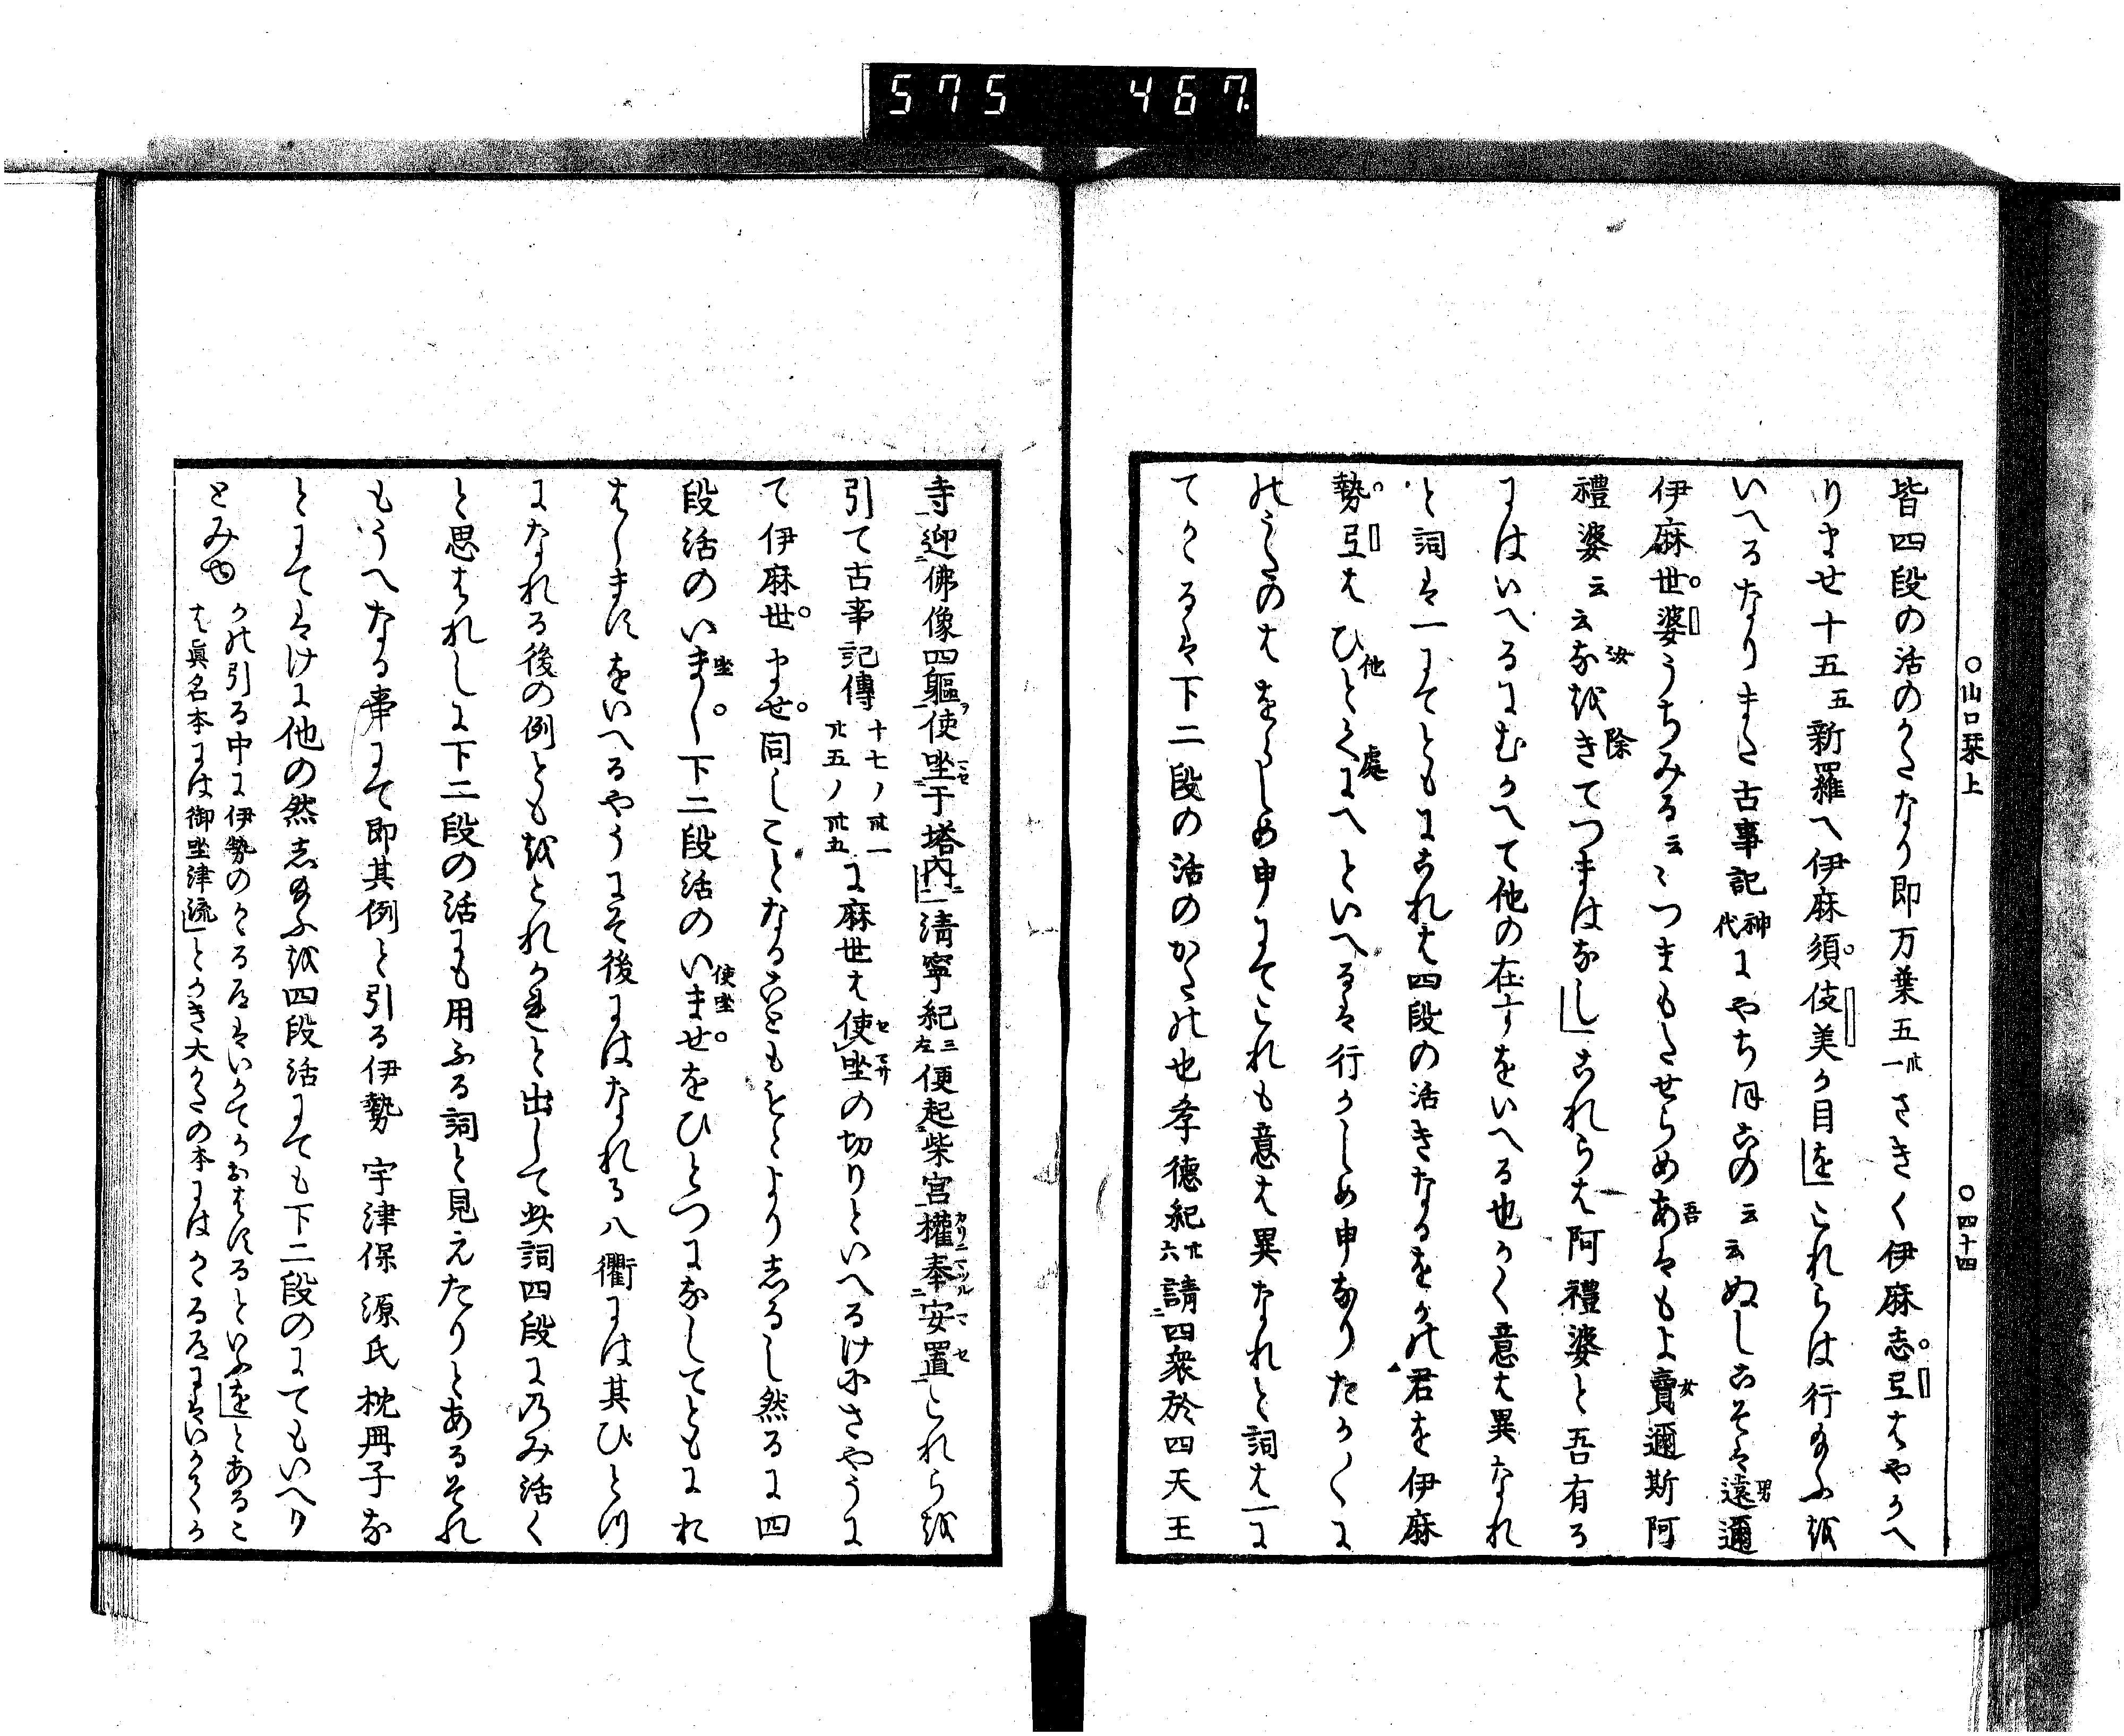 575 467
○山口栞上 ○四十四
皆四段の活のかたなり即万葉五卅一さきく伊麻志弖はやかへ
りませ十五五新羅へ伊麻須伎美か目を」これらは行給ふを
いへるなりまた古事記神代にやちほこの云云ぬしこそは遠邇
伊麻世婆うちみる云々つまもたせらめあはもよ賣邇斯阿
禮婆云云なをきてつまはなし」これらは阿禮婆と吾有る
にはいへるにむかへて他の在すをいへる也かく意は異なれ
と詞は一にてともにこれは四段の活きなるをかの君を伊麻
勢弖はひとくにへといへるは行かしめ申なりたかくに
のうたのはをらしめ申にてこれも意は異なれと詞は一に
てかくるは下二段の活のかたの也孝德紀廿六請四衆於四天王
寺迎佛像四軀使坐于塔内」清寧紀三左便起柴宮權奉安置」これらを
引て古事記傳十七ノ卅一廿五ノ卅五に麻世は使坐の切りといへるけにさやうに
て伊麻世ませ同しことなることももとより志るし然るに四
段活のいまし下二段活のいませをひとつになしてともにれ
はしまにをいへるやうにそ後にはなれる八衢には其ひとつ
になれる後の例ともをとれかれと出して此詞四段にのみ活く
と思はれしに下二段の活にも用ふる詞と見えたりとあるそれ
もうへなる事にて即其例と引る伊勢宇津保源氏枕冊子な
とにてはけに他の然志給ふを四段活にても下二段のにてもいへり
とみゆかの引る中に伊勢のかくるはいかてかおはするといふを」とあるこ
は眞名本には御坐津流」とかき大かたの本にはかくるにはいかてか